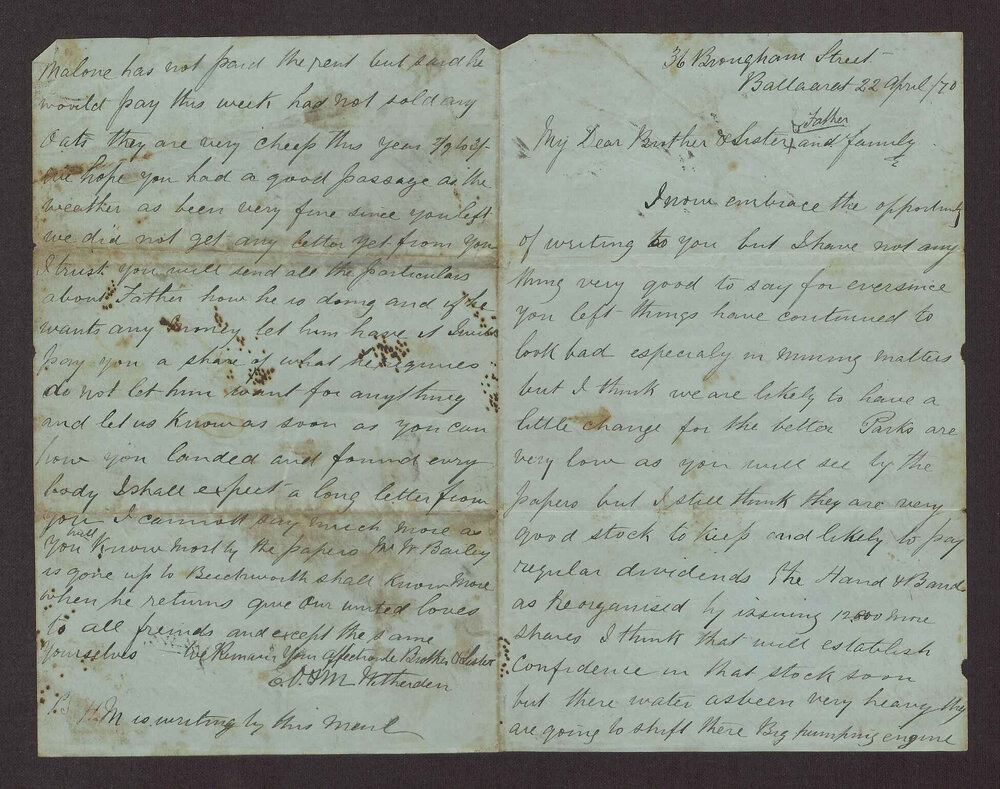 36 Brougham Street
Ballaarat 22 April /70
My Dear Brother & Sister & Father and family
I now embrace the opportunity
of writing to you but I have not any
thing very good to say for eversince
you left things have continued to
look bad especialy in mining matters
but I think we are likely to have a
little change for the better Parks are
very low as you will see by the
papers but I still think they are very
good stock to keep and likely to pay
regular dividends The Hand & Band
as Reorganised by issuing 12000 more
shares I think that will establish
Confidence in that stock soon
but there water asbeen very heavy they
are going to shift there Big pumping engine
Malone has not paid the rent but said he
would pay this week has not sold any
Oats they are very cheap this year 2/9 to 3/-
we hope you had a good passage as the
weather as been very fine since you left
we did not get any letter yet from you
I trust you will send all the particulars
about Father how he is doing and if he
wants any money let him have it I will
pay you a share of what he requires
do not let him want for anything
and let us know as soon as you can
how you landed and found evry
body I shall expect a long letter from
you I cannott say much more as
you will know most by the papers Mr W Bailey
is gone up to Beechworth shall know more
when he returns give our united loves
to all freinds and except the same
yourselves We Remain Your affectionate Brother & Sister
O. & M Witherden
PS M is writing by this mail